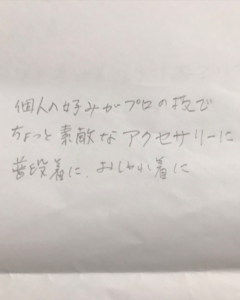 個人の好みがプロの技で
ちょっと素敵なアクセサリーに
普段着に、おしゃれ着に